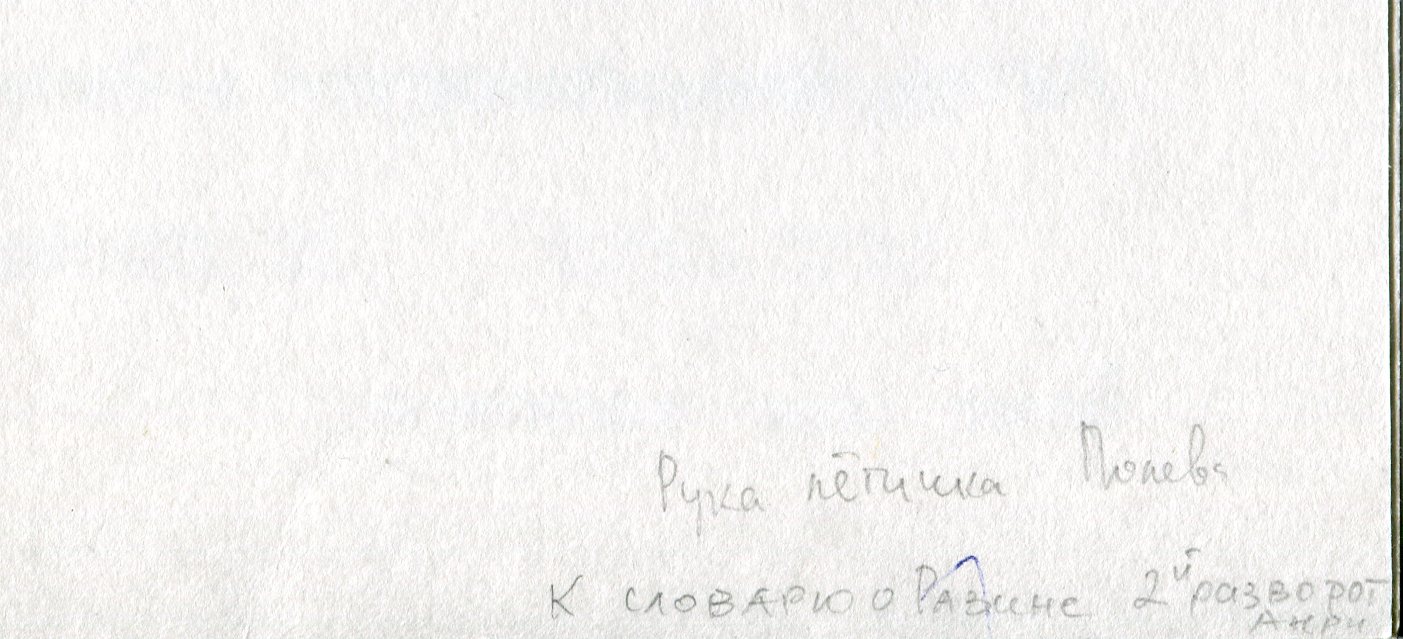 Рука лётчика Попева
К словарю о Разине 2й разворот
Анри